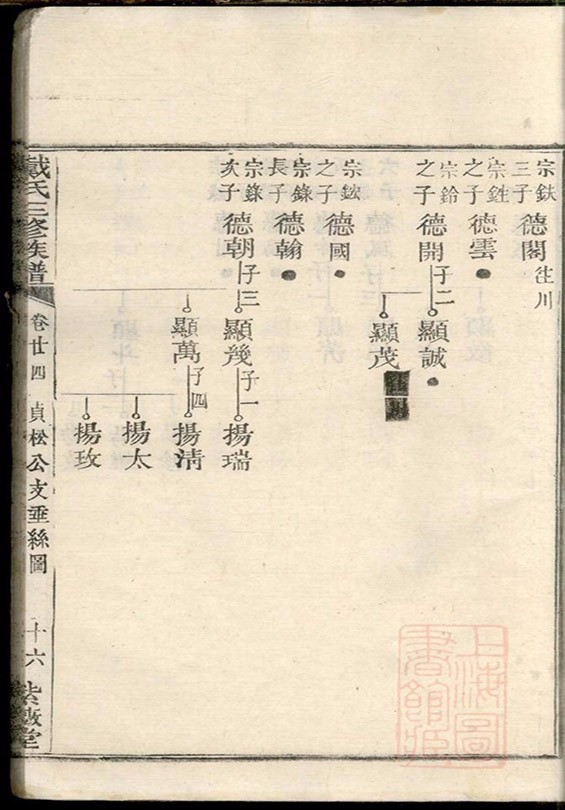 宗鈇三子 德閣 往川
宗銑之子 德雲
宗鈴之子 德開 子二 顯誠
顯茂
宗鈥之子 德國
宗錄長子 德翰
宗錄次子 德朝 子三 顯幾 子一 揚瑞
顯萬 子四 揚清
揚太
揚玫
戴氏三修族譜 卷廿四 貞松公支垂絲圖 十六 紫薇堂
上海圖書館藏